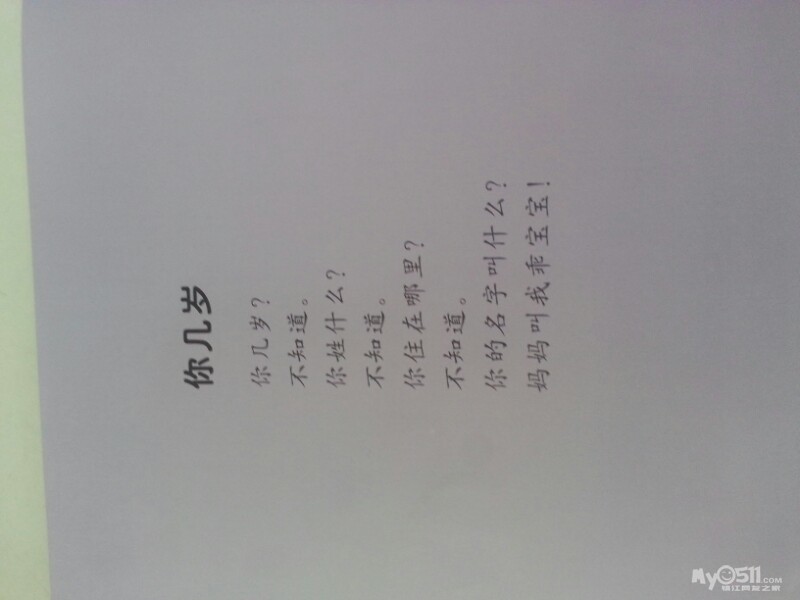 你几岁
你几岁？
不知道。
你姓什么？
不知道。
你住在哪里？
不知道。
你的名字叫什么？
妈妈叫我乖宝宝！
My0511.COM
镇江网友之家